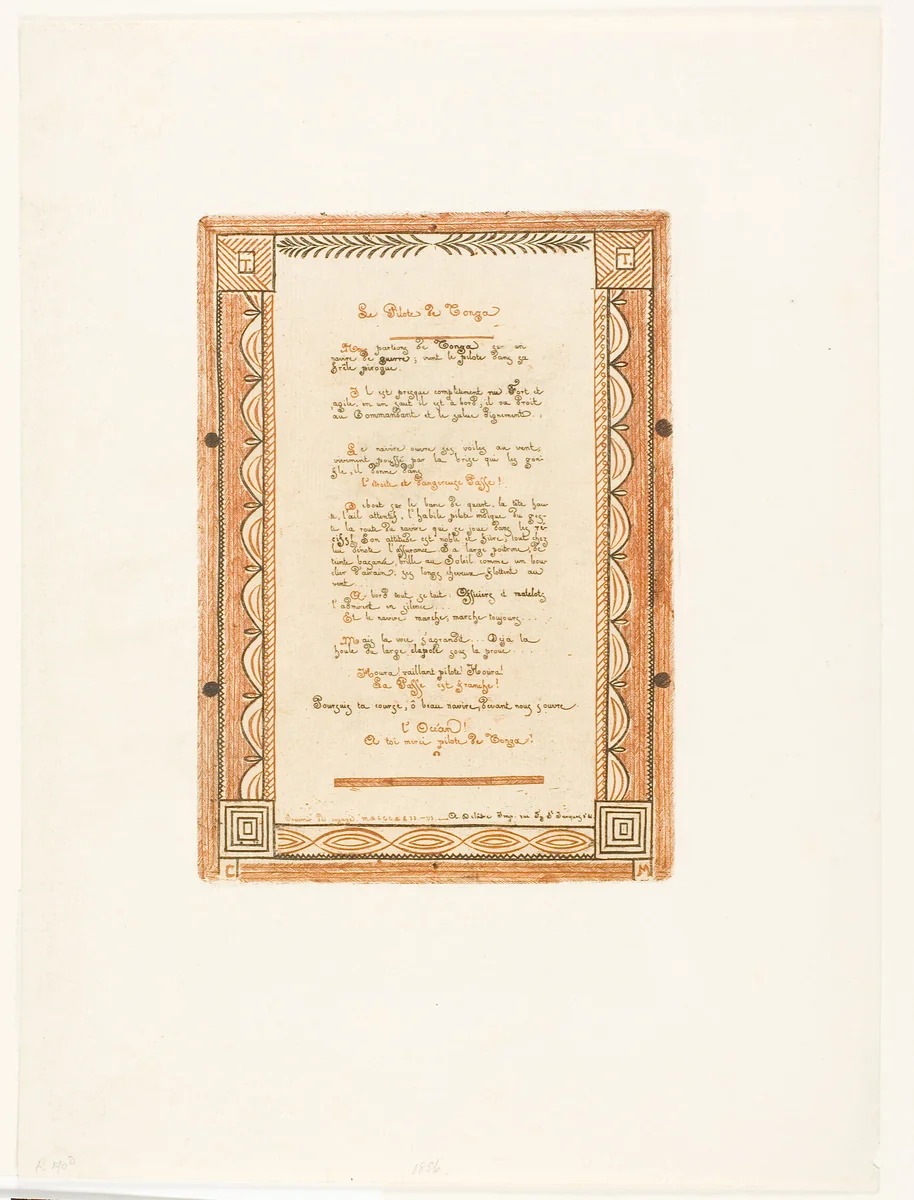 T
T
Le Pilote de Tonga
Nous partions de Tonga sur un
navire de guerre; vint le pilote dans sa
frêle pirogue.
Il est presque complètement nu Fort et
agile, en un saut il est à bord; il va droit
au Commandant et le salue dignement...
Le navire ouvre ses voiles au vent,
vivement poussé par la brise qui les gon-
fle, il donne dans
l'étroite et dangereuse Passe!
Debout sur le banc de quart, la tête hau-
te, l'œil attentif, l'habile pilote indique du ges-
te la route du navire qui se joue dans les ré-
cifs! Son attitude est noble et fière, tout chez
lui dénote l'assurance. Sa large poitrine, de
teinte bazanée, brille au Soleil comme un bou-
clier d'airain; ses longs cheveux flottent au
vent...
A bord tout se tait. Officiers et matelots
l'admirent en silence....
Et le navire marche, marche toujours...
Mais la voie s'agrandit... Déjà la
houle du large clapote sous la proue....
Houra vaillant pilote Houra!
La Passe est franchie!
Poursuis ta course, ô beau navire, devant nous s'ouvre
l'Océan!
A toi merci pilote de Tonga!
A. Delâtre Imp. rue
C
M
1856